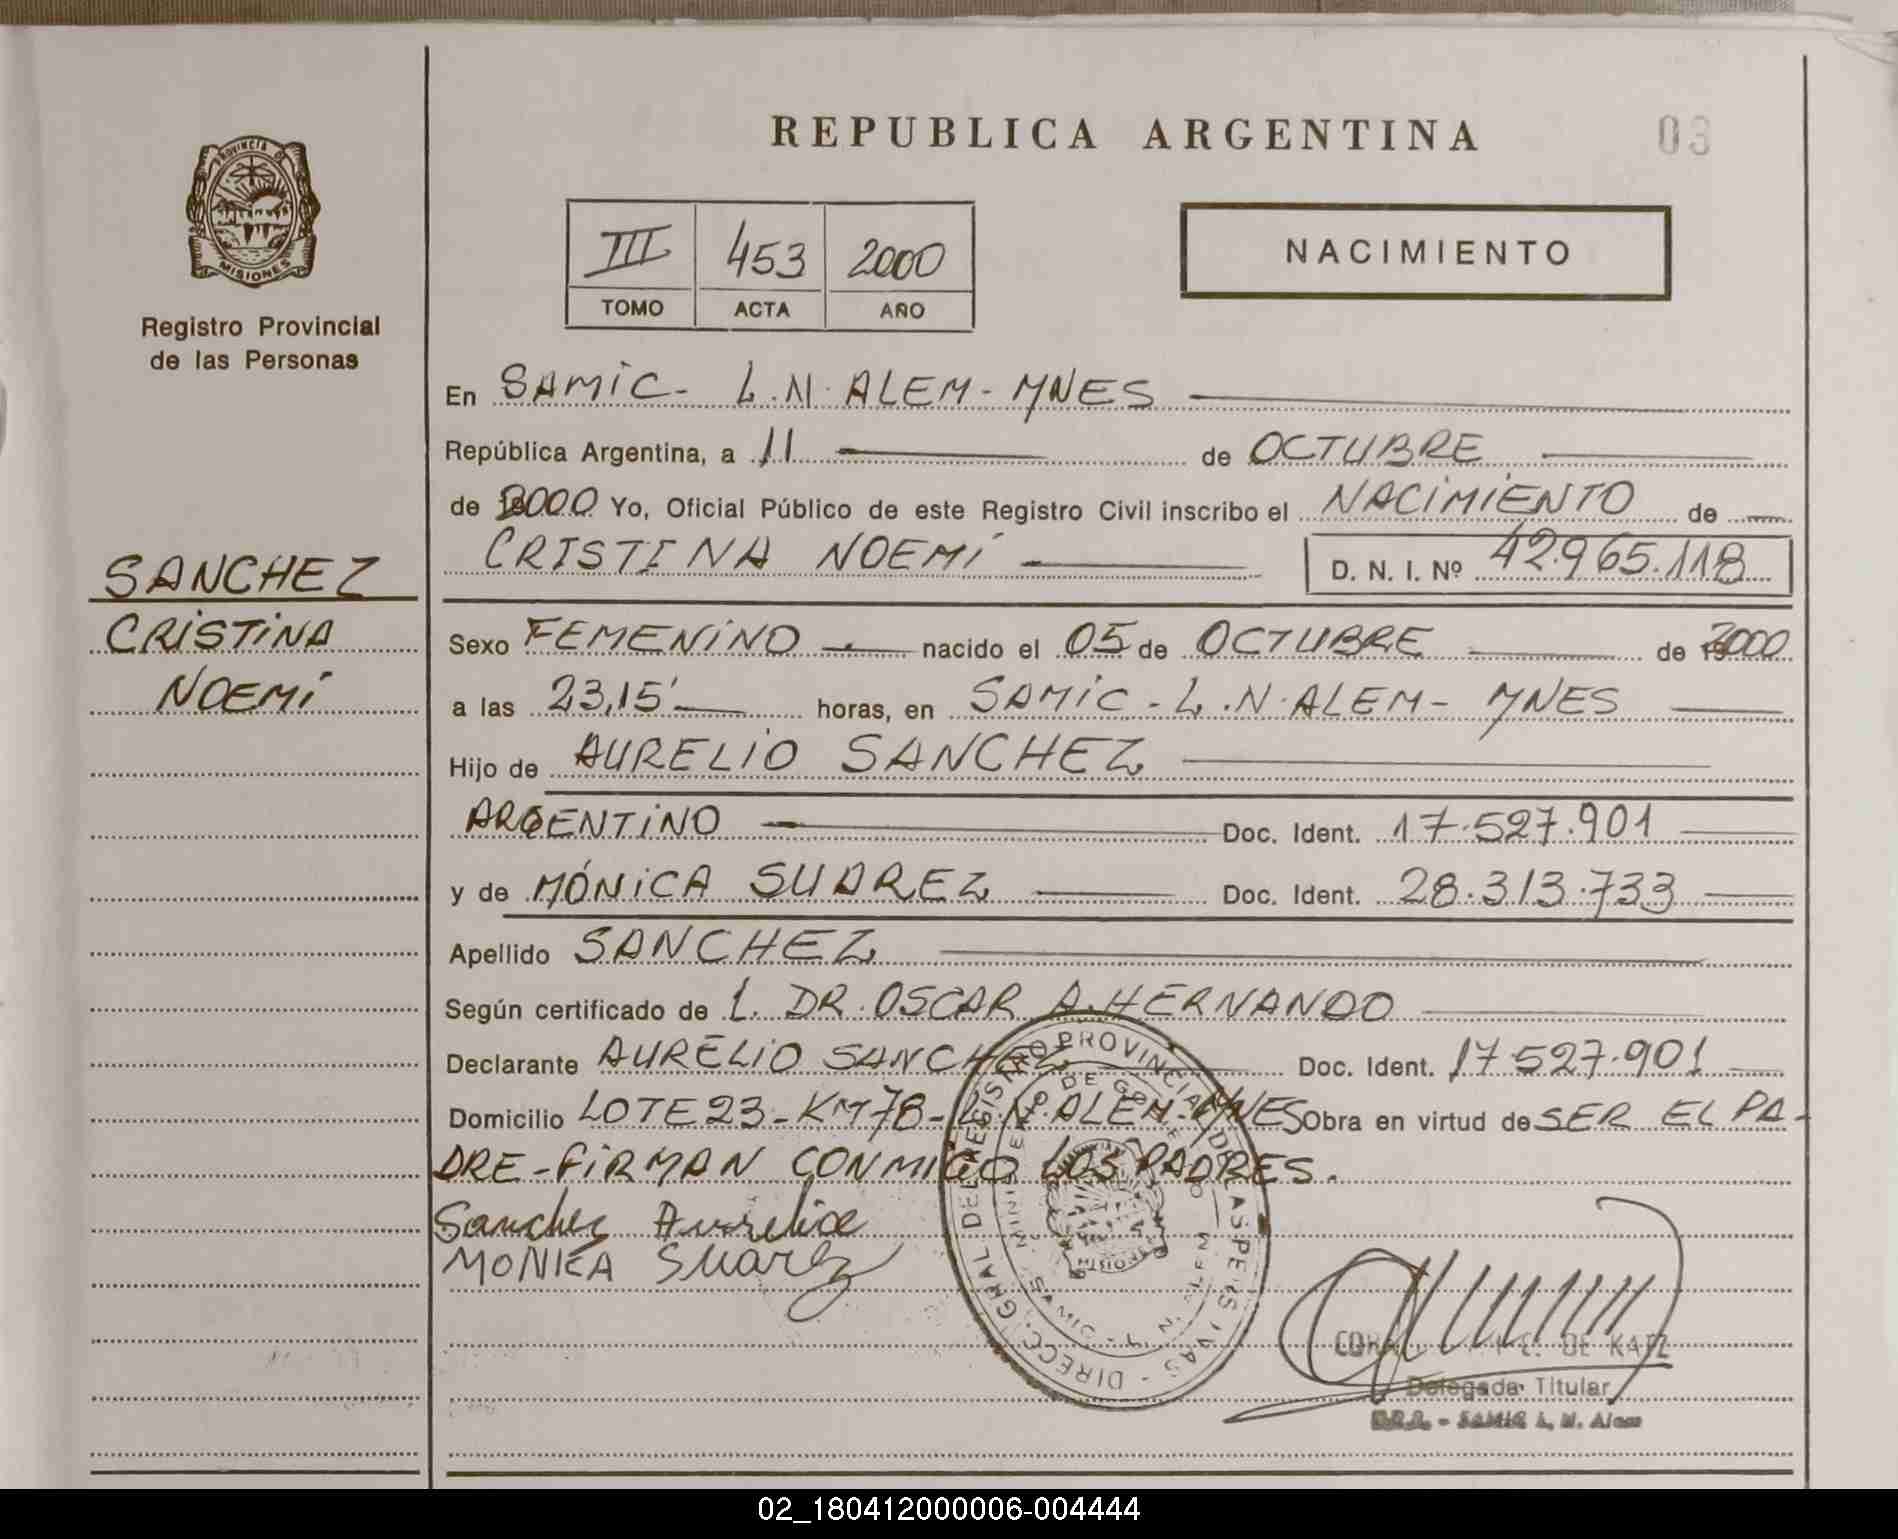 REPUBLICA ARGENTINA
03
PROVINCIA DE
MISIONES
Registro Provincial
de las Personas
III 453 2000
TOMO ACTA AÑO
NACIMIENTO
En SAMIC - L.N. ALEM - MNES
República Argentina, a 11 de OCTUBRE
de 2000 Yo, Oficial Público de este Registro Civil inscribo el NACIMIENTO de
CRISTINA NOEMÍ D. N. I. Nº 42.965.118
SANCHEZ
CRISTINA
NOEMÍ
Sexo FEMENINO nacido el 05 de OCTUBRE de 2000
a las 23,15' horas, en SAMIC - L.N. ALEM - MNES
Hijo de AURELIO SANCHEZ
ARGENTINO Doc. Ident. 17.527.901
y de MÓNICA SUAREZ Doc. Ident. 28.313.733
Apellido SANCHEZ
Según certificado de L. DR. OSCAR A. HERNANDO
Declarante AURELIO SANCHEZ Doc. Ident. 17.527.901
Domicilio LOTE 23 - KM 78 - L.N. ALEM - MNES Obra en virtud de SER EL PA-
DRE - FIRMAN CONMIGO LOS PADRES.
Sanchez Aurelio
MONICA Suarez
DIRECC. GRAL DEL REGISTRO PROVINCIAL DE LAS PERSONAS
MINISTERIO DE GOBIERNO
SAMIC - L. N. ALEM
MISIONES
E. DE KATZ
Delegada Titular
SAMIC L. N. Alem
02_180412000006-004444